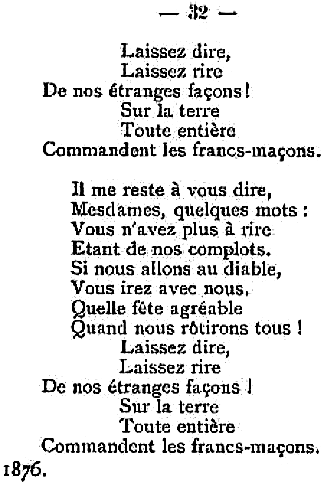 — 32 —
Laissez dire,
Laissez rire
De nos étranges façons !
Sur la terre
Toute entière
Commandent les francs-maçons.
Il me reste à vous dire,
Mesdames, quelques mots :
Vous n'avez plus à rire
Etant de nos complots.
Si nous allons au diable,
Vous irez avec nous.
Quelle fête agréable
Quand nous rôtirons tous !
Laissez dire,
Laissez rire
De nos étranges façons !
Sur la terre
Toute entière
Commandent les francs-maçons.
1876.